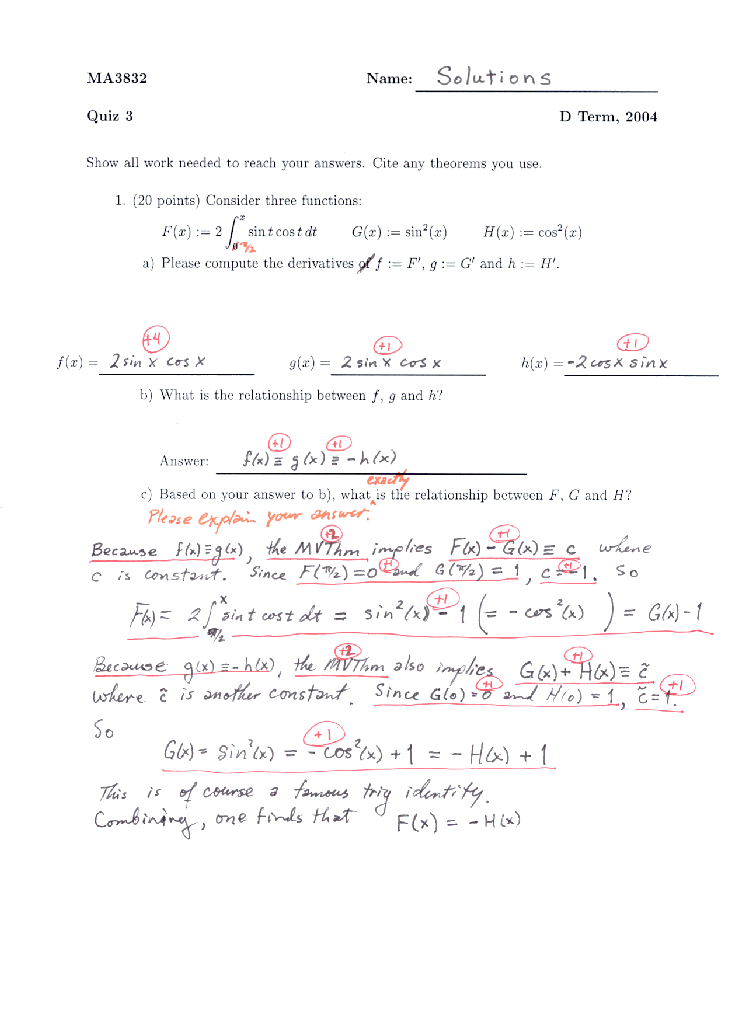 MA3832 Name: Solutions
Quiz 3 D Term, 2004
Show all work needed to reach your answers. Cite any theorems you use.
1. (20 points) Consider three functions:
F(x) := 2 ∫_{π/2}^{x} sin t cos t dt G(x) := sin²(x) H(x) := cos²(x)
a) Please compute the derivatives of f := F′, g := G′ and h := H′.
+4 +1 +1
f(x) = 2 sin x cos x g(x) = 2 sin x cos x h(x) = -2 cos x sin x
b) What is the relationship between f, g and h?
+1 +1
Answer: f(x) ≡ g(x) ≡ -h(x)
exactly
c) Based on your answer to b), what is the relationship between F, G and H?
Please explain your answer.
+2 +1
Because f(x)≡g(x), the MVThm implies F(x) - G(x) ≡ c where
c is constant. Since F(π/2)=0 +1 and G(π/2) = 1, c = -1. +1 So
F(x) = 2 ∫_{π/2}^{x} sin t cos t dt = sin²(x) - 1 +1 (= - cos²(x)) = G(x) - 1
+2 +1
Because g(x) ≡ -h(x), the MVThm also implies G(x) + H(x) ≡ c̃
where c̃ is another constant. Since G(0) = 0 +1 and H(0) = 1, c̃ = 1. +1
So +1
G(x) = sin²(x) = - cos²(x) + 1 = - H(x) + 1
This is of course a famous trig identity.
Combining, one finds that F(x) = - H(x)